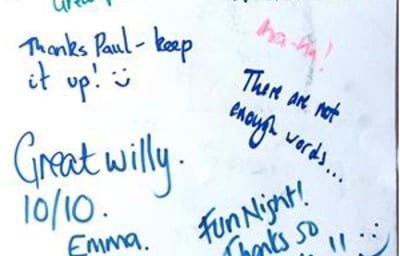 Thanks Paul - keep
it up!
ha-ha!
There are not
enough words...
Great willy.
10/10.
Emma.
Fun Night!
Thanks so